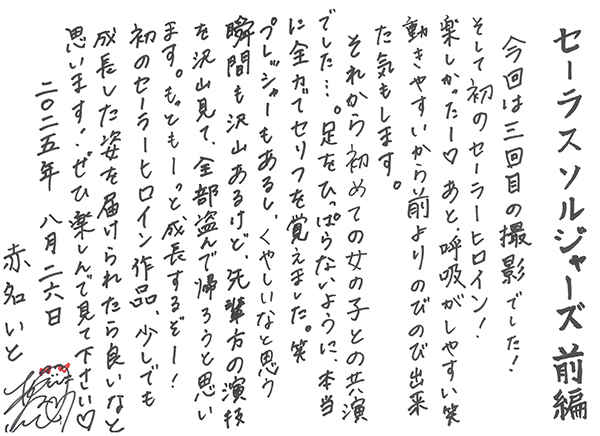 セーラスソルジャーズ前編
今回は三回目の撮影でした！
そして初のセーラーヒロイン！
楽しかったー♡あと、呼吸がしやすい笑
動きやすいから前よりのびのび出来
た気もします。
それから初めての女の子との共演
でした…。足をひっぱらないように、本当
に全力でセリフを覚えました。笑
プレッシャーもあるし、くやしいなと思う
瞬間も沢山あるけど、先輩方の演技
を沢山見て、全部盗んで帰ろうと思い
ます。もっともーっと成長するぞー！
初のセーラーヒロイン作品、少しでも
成長した姿を届けられたら良いなと
思います！ぜひ楽しんで見て下さい♡
二〇二五年 八月二六日
赤名いと